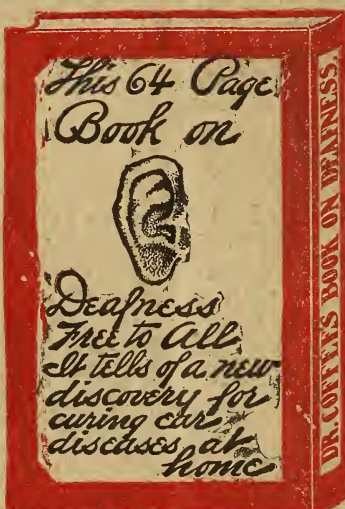 This 64 Page
Book on
Deafness
Free to All
It tells of a new
discovery for
curing ear
diseases at
home
DR. COFFEE'S BOOK ON DEAFNESS.